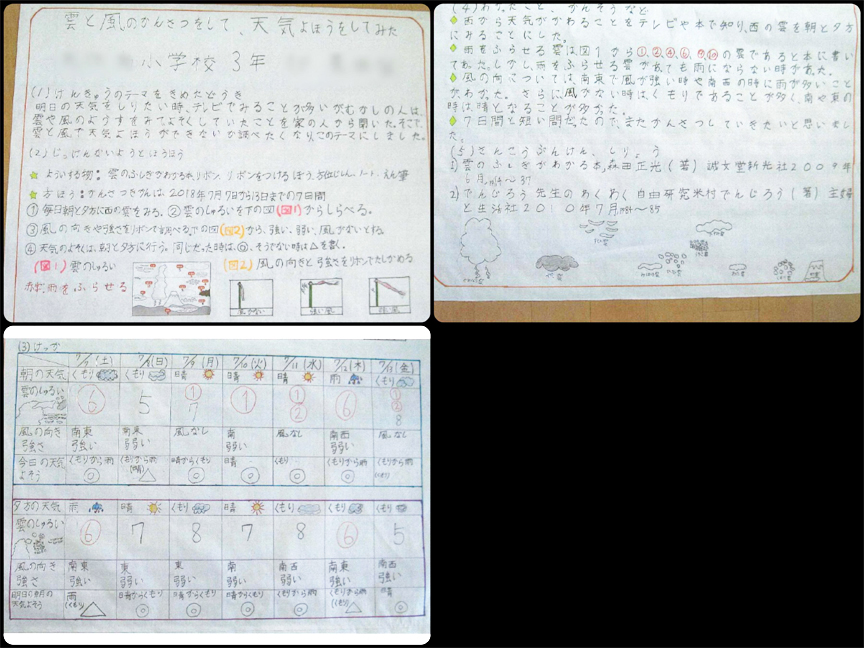 雲と風のかんさつをして、天気よほうをしてみた
小学校 3年
(1) けんきゅうのテーマをきめたどうき
明日の天気をしりたい時、テレビでみることが多いがむかしの人は、
雲や風のようすをみてよそくしていたことを家の人から聞いた。そこで、
雲と風で天気よほうができないか調べたくなり、このテーマにしました。
(2) じっけんかいようとほうほう
ようい する物: 雲のふしぎがわかる本、リボン、リボンをつけるぼう、方位じしん、ノート、えん筆
方ほう: かんさつきかんは、2018年7月7日から13日までの7日間
① 毎日朝と夕方に西の雲をみる。②雲のしゅるいを下の図(図1)からしらべる。
③ 風の向きや強さをリボンで調べ下の図(図2)から、強い、弱い、風がないとする。
④ 天気のよそくは、朝と夕方に行う。同じだった時は、◎、そうでない時は△を書く。
(図1) 雲のしゅるい (図2) 風の向きと強さをリボンでたしかめる
赤が雨をふらせる
風がない 弱い風 強い風
(4) わかったこと、かんそうなど
西から天気がかわることをテレビや本で知り、西の雲を朝と夕方
にみることにした。
雨をふらせる雲は図1から①、②、④、⑥、⑨、⑩の雲であると本に書い
てあった。しかし、雨をふらせる雲があっても雨にならない時があった。
風の向きについては、南東で風が強い時や南西の時に雨が多いこと
がわかった。さらに風がない時はくもりであることが多く、南や東の
時は晴となることが多かった。
7日間と短い間だったので、またかんさつしていきたいと思いまし
た。
(5) さんこうぶんけん、しりょう
1) 雲のふしぎがわかる本、森田正光(著) 誠文堂新光社 2009年
6月、
2) でんじろう先生のわくわく自由研究 米村でんじろう(著) 主婦
と生活社 2010年7月
(3) けっか
7/7(土) 7/8(日) 7/9(月) 7/10(火) 7/11(水) 7/12(木) 7/13(金)
朝の天気 くもり くもり 晴 晴 晴 雨 くもり
雲のしゅるい ⑥ 5 ① 7 ① ① ② ⑥ ① ② 8
風の向き 南東 南東 風なし 南 風なし 南西 風なし
強さ 強い 弱い 弱い 弱い
今日の天気 くもりから雨 くもりから雨 晴からくもり 晴 くもり くもりから雨 くもりから雨
よそう ◎ △ ◎ ◎ ◎ ◎
夕方の天気 雨 晴 くもり 晴 くもり くもり くもり
雲のしゅるい ⑥ 7 8 7 8 ⑥ 5
風の向き 南東 東 東 南 南西 南東 南西
強さ 強い 弱い 弱い 弱い 弱い 強い 強い
明日の朝の 雨 晴からくもり 晴からくもり 晴からくもり くもりから雨 くもりから雨 晴
天気よそう (くもり) △ ◎ ◎ ◎ ◎ (くもり) △ ◎